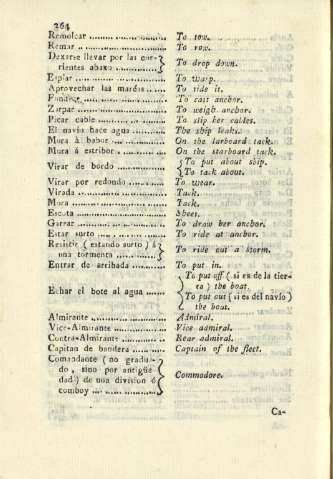 264
Remolcar .................. To tow.
Remar .................. To row.
Dexarse llevar por las corrientes abaxo .......... To drop down.
Espiar .................. To warp.
Aprovechar las maréas ...... To tide it.
Fondear .................. To cast anchor.
Zarpar .................. To weigh anchor.
Picar cable .................. To slip her cables.
El navio hace agua .......... The ship leaks.
Mura á babor ............ On the larboard tack.
Mura á estribor ............ On the starboard tack.
Virar de bordo ............ { To put about ship.
{ To tack about.
Virar por redondo .......... To wear.
Virada .................. Tack.
Mura .................. Tack.
Escota .................. Sheet.
Garrar .................. To draw her anchor.
Estar surto .................. To ride at anchor.
Resistir ( estando surto ) á
una tormenta .......... } To ride out a storm.
Entrar de arribada .......... To put in.
Echar el bote al agua ...... { To put off ( si es de la tierra ) the boat.
{ To put out ( si es del navío ) the boat.
Almirante .................. Admiral.
Vice-Almirante .............. Vice admiral.
Contra-Almirante ............ Rear admiral.
Capitan de bandera .......... Captain of the fleet.
Comandante ( no gradua-
do , sino por antigüe
dad ) de una division ó
comboy .................. } Commodore.
Ca-